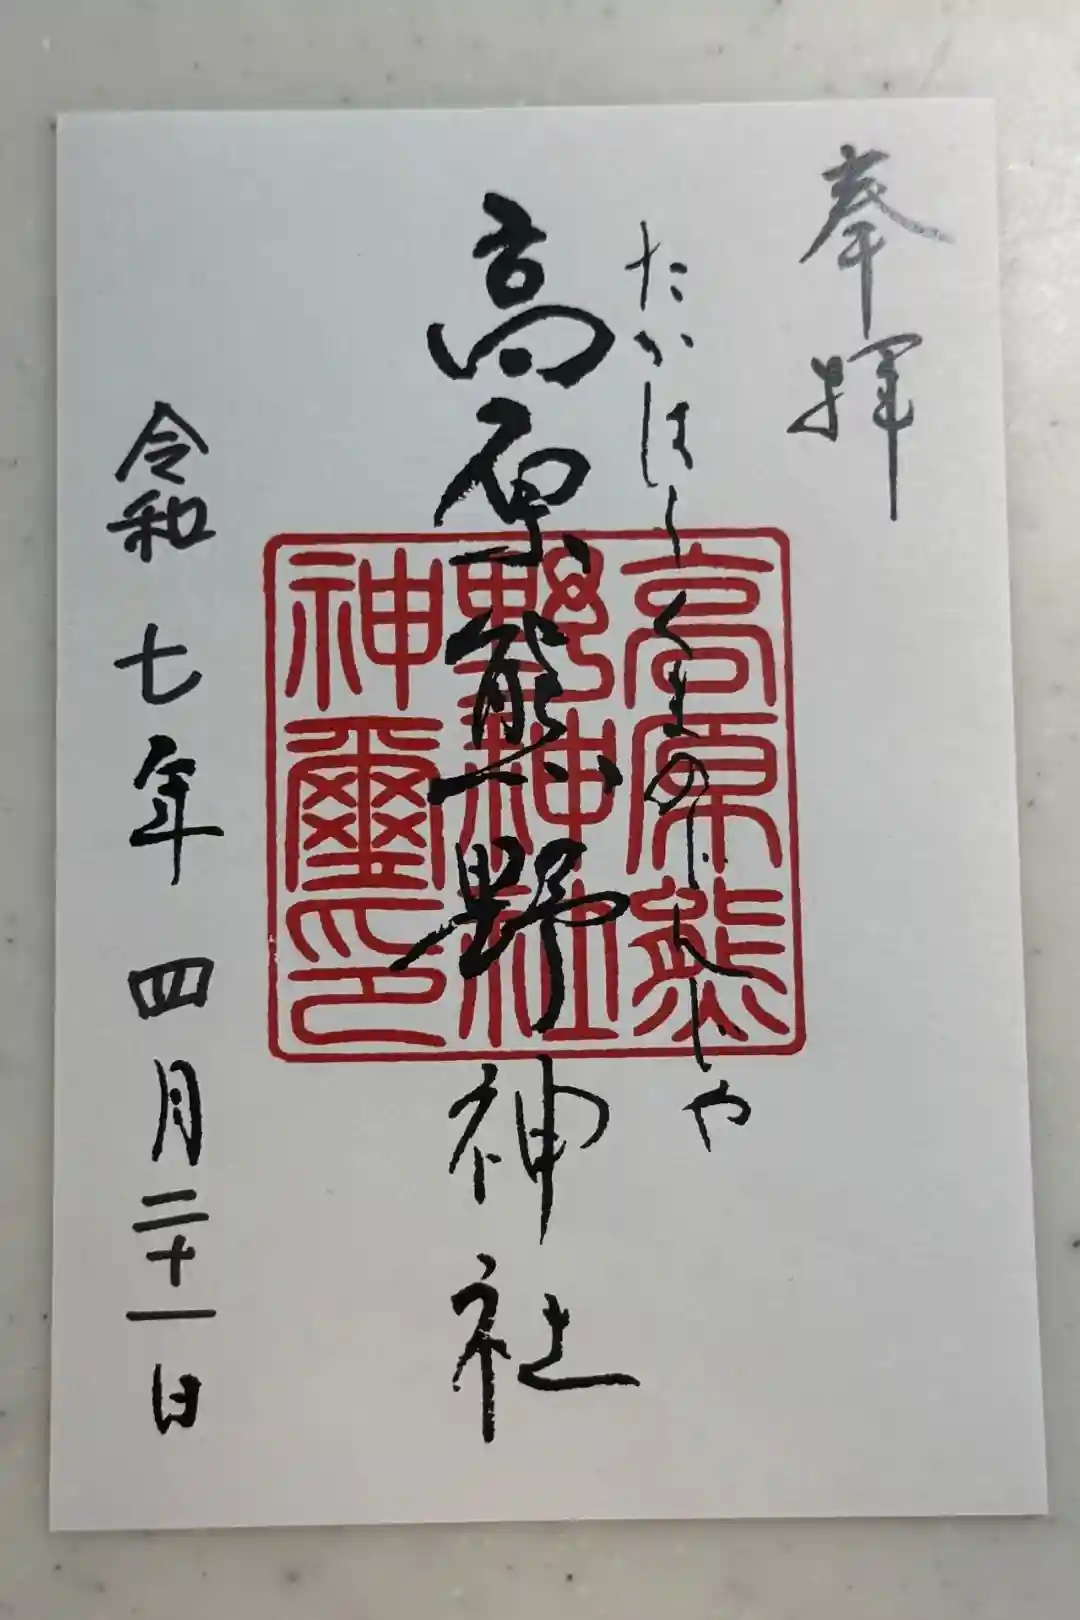 奉拝
たかはらくまのじんじゃ
高原熊野神社
令和七年四月二十一日
高原熊
野神社
神璽印